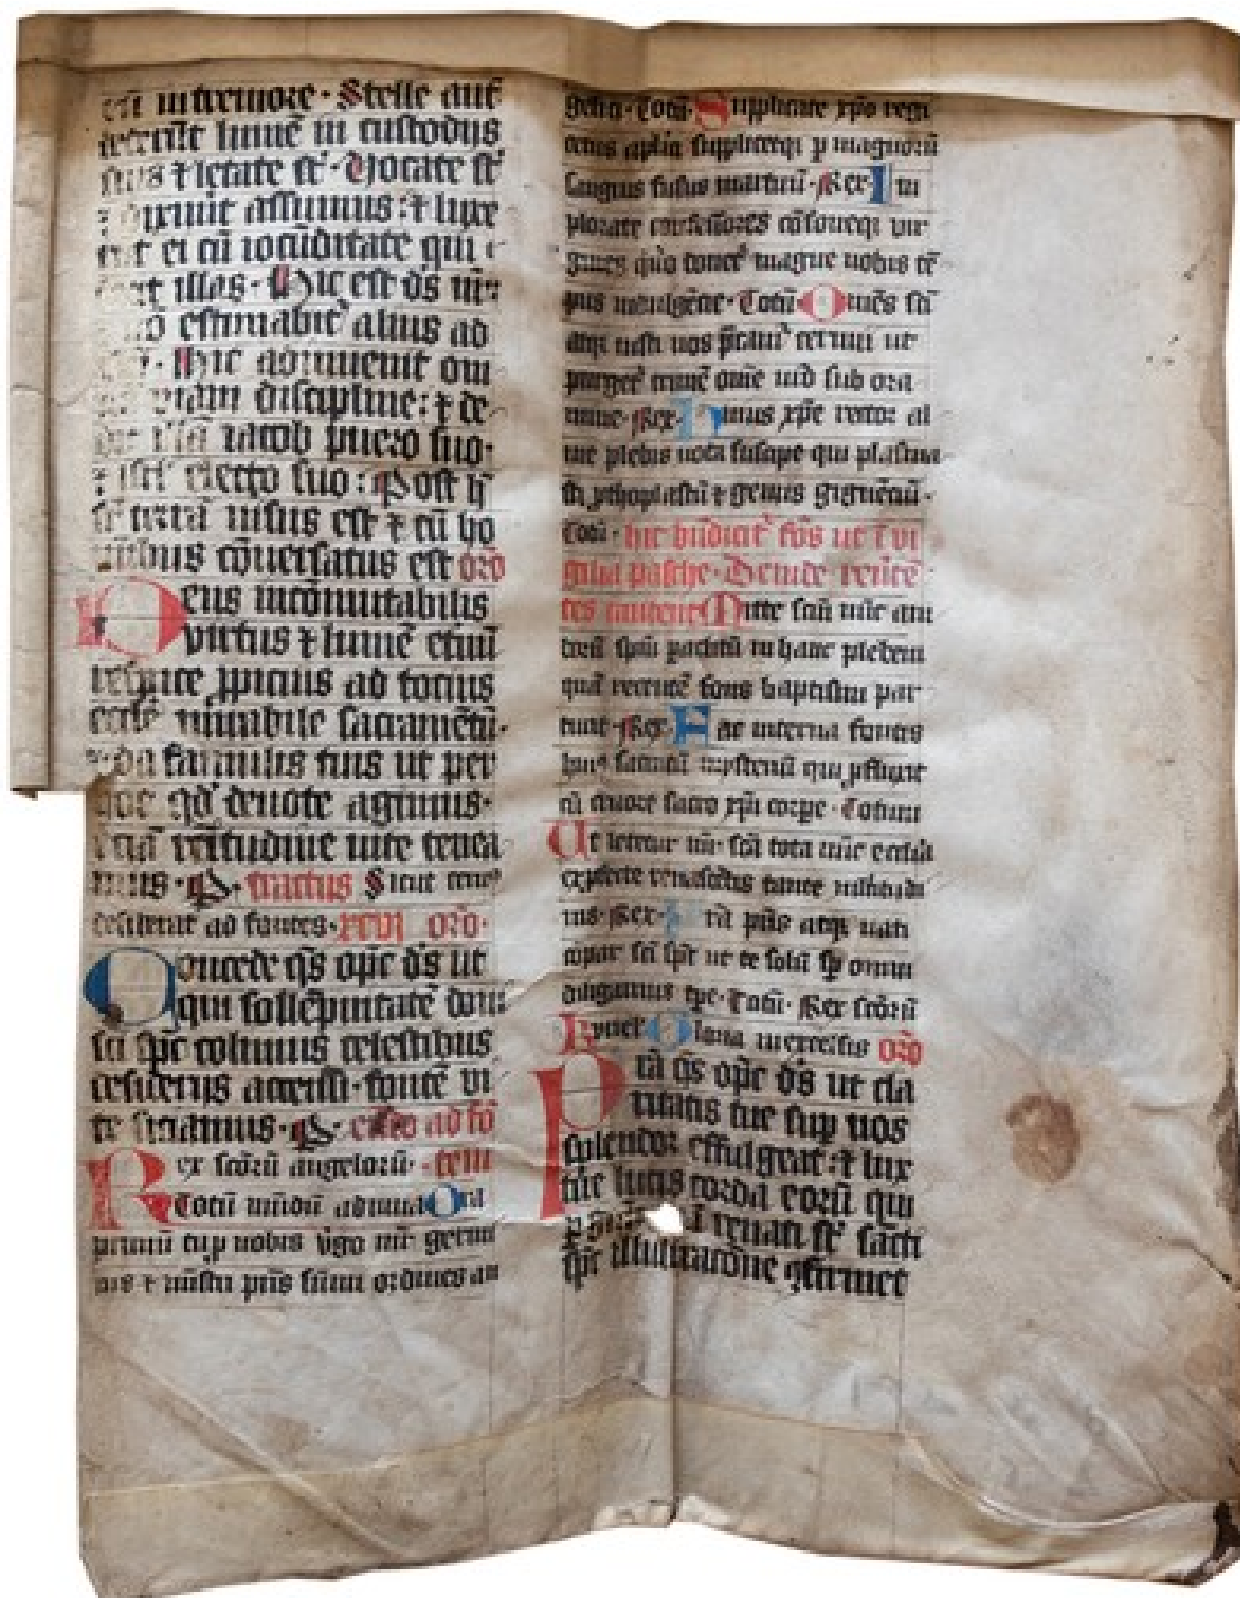 in tremore · Stelle aut
lumē in custodijs
suis ⁊ letate st̄ · Vocate st̄
⁊ dixerūt assumus : ⁊ luxe
ei cū iocūditate qui
illas · Hic est ds̄
estimabit̉ alius ad
Hic adinuenit om
uiam discipline : ⁊ de
iacob puero suo ·
⁊ isrl̄ electo suo : Post h̄
terrā uisus est ⁊ cū ho
minibus cōuersatus est orō
Deus incōmutabilis
virtus ⁊ lumē etinū
respice ꝓpicius ad tocius
ecclē mirabile sacramētū ·
⁊ da famulis tuis ut per
hoc qd̄ deuote agimus ·
rectitudine uite tenea
mus · tractus Sicut cerủ
desiderat ad fontes · orō ·
Concede qs̄ opc̄ ds̄ ut
qui sollēpnitatē doni
sci sp̄c colimus celestibus
desiderijs accensi · fontē vi
te siciamus ·
Rex scōrū angelorū ·
Totū mūdū adiuua Ora
primū tu ꝑ nobis v̉go mr̄ germi
nis ⁊ mīstri pr̄is sūmi ordines an
gelici · Totū · Supplicate xp̄o regi
cetus aplici supplicetqꝫ ꝑ magnorū
sanguis fusus martirū · Rex · Im
plorate confessores cōsoneqꝫ vir
gines quo donet̉ magne nobis tē
pus indulgētie · Totū Omēs scī
atqꝫ iusti uos p̄camur̉ cernui ut
purget̉ crimē om̄e urō sub ora
mine · Rex · Huius xp̄e rector al
me plebis uota suscipe qui plasma
sti ꝓthoplastū ⁊ genus gignēciū ·
Totū · hic bn̄dicit̉ fōs ut ī vi
gilia pasche · Deinde reuētē
tes cantent Mitte scm̄ nūc am
borū spm̄ ꝑaclitū in hanc plebem
quā recentē fons baptismi par
turit · Rex · Fac interna fontis
huiꝰ sacratū mysteriū qui ꝓfluxit
cū cruore sacro xp̄i corpe · Totum
Ut letetur mr̄ scā tota nūc ecclīa
ex ꝓfectu renascētis tante multitudi
nis · Rex · Prā pr̄is atqꝫ nati
compar sci sp̄c ut te solū sꝑ omni
diligamus tp̄e · Totū · Rex scōrū
Kyriel Gloria in excelsis orō
Prā qs̄ opc̄ ds̄ ut cla
ritatis tue suꝑ nos
splendor effulgeat : ⁊ lux
tue lucis corda eorū qui
renati st̄ sācti
sp̄c illustratione ꝯfirmet